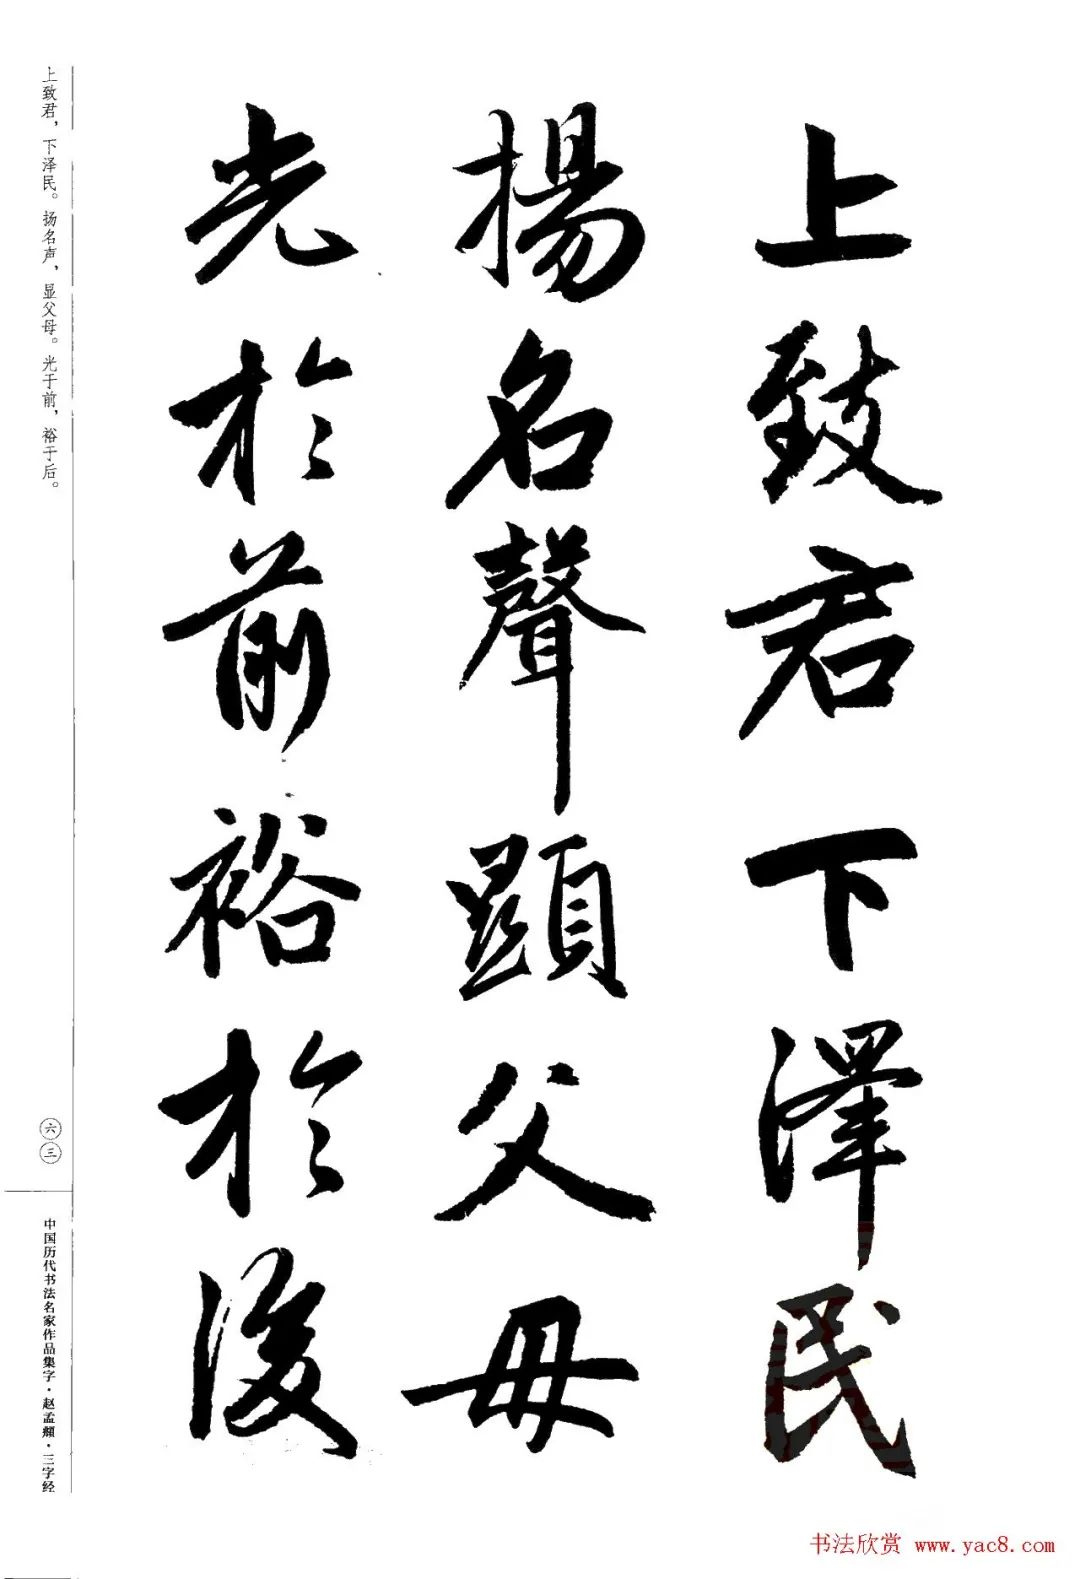 上致君下澤民
揚名聲顯父母
光於前裕於後
上致君，下泽民。扬名声，显父母。光于前，裕于后。
六三
中国历代书法名家作品集字·赵孟頫·三字经
书法欣赏 www.yac8.com